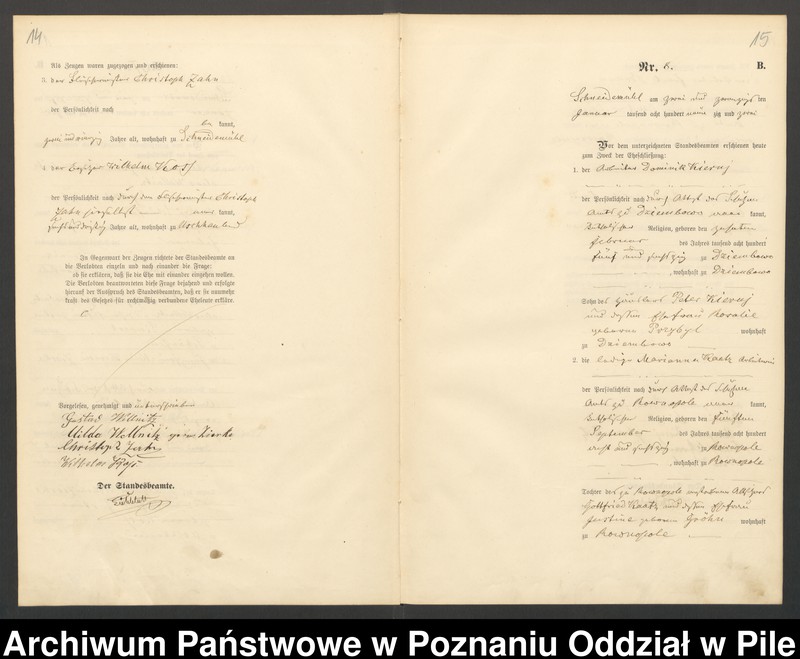 14
Als Zeugen waren zugezogen und erschienen:
3. der Fleischermeister Christoph Zahn
der Persönlichkeit nach
be kannt,
zwei und vierzig Jahre alt, wohnhaft zu Schneidemühl
4. der Besitzer Wilhelm
der Persönlichkeit nach durch den Fleischermeister Christoph
Zahn kannt,
fünf und dreißig Jahre alt, wohnhaft zu
In Gegenwart der Zeugen richtete der Standesbeamte an
die Verlobten einzeln und nach einander die Frage:
ob sie erklären, daß sie die Ehe mit einander eingehen wollen.
Die Verlobten beantworteten diese Frage bejahend und erfolgte
hierauf der Ausspruch des Standesbeamten, daß er sie nunmehr
kraft des Gesetzes für rechtmäßig verbundene Eheleute erkläre.
Vorgelesen, genehmigt und unterschrieben
Gustav Wollnitz
Hilda Wollnitz
Christoph Zahn
Wilhelm
Der Standesbeamte.
15
Nr. 8. B.
Schneidemühl am zwei und zwanzigsten
Januar tausend acht hundert neun zig und zwei
Vor dem unterzeichneten Standesbeamten erschienen heute
zum Zweck der Eheschließung:
1. der Arbeiter Dominik Kieruj
der Persönlichkeit nach durch Attest des Schulzen
Amts zu Dziembowo kannt,
katholischer Religion, geboren den
Februar des Jahres tausend acht hundert
fünf und sechszig zu Dziembowo
, wohnhaft zu Dziembowo
Sohn des Häuslers Peter Kieruj
und dessen Ehefrau Rosalie
geborene Przybyl wohnhaft
zu Dziembowo
2. die ledige Marianna Kaatz Arbeiterin
der Persönlichkeit nach durch Attest des Schulzen
Amts zu Rownopole kannt,
katholischer Religion, geboren den fünften
September des Jahres tausend acht hundert
acht und sechszig zu Rownopole
, wohnhaft zu Rownopole
Tochter des zu Rownopole verstorbenen Altsitzers
Gottfried Kaatz und dessen Ehefrau
Justine geborene Gröhn wohnhaft
zu Rownopole
Archiwum Państwowe w Poznaniu Oddział w Pile